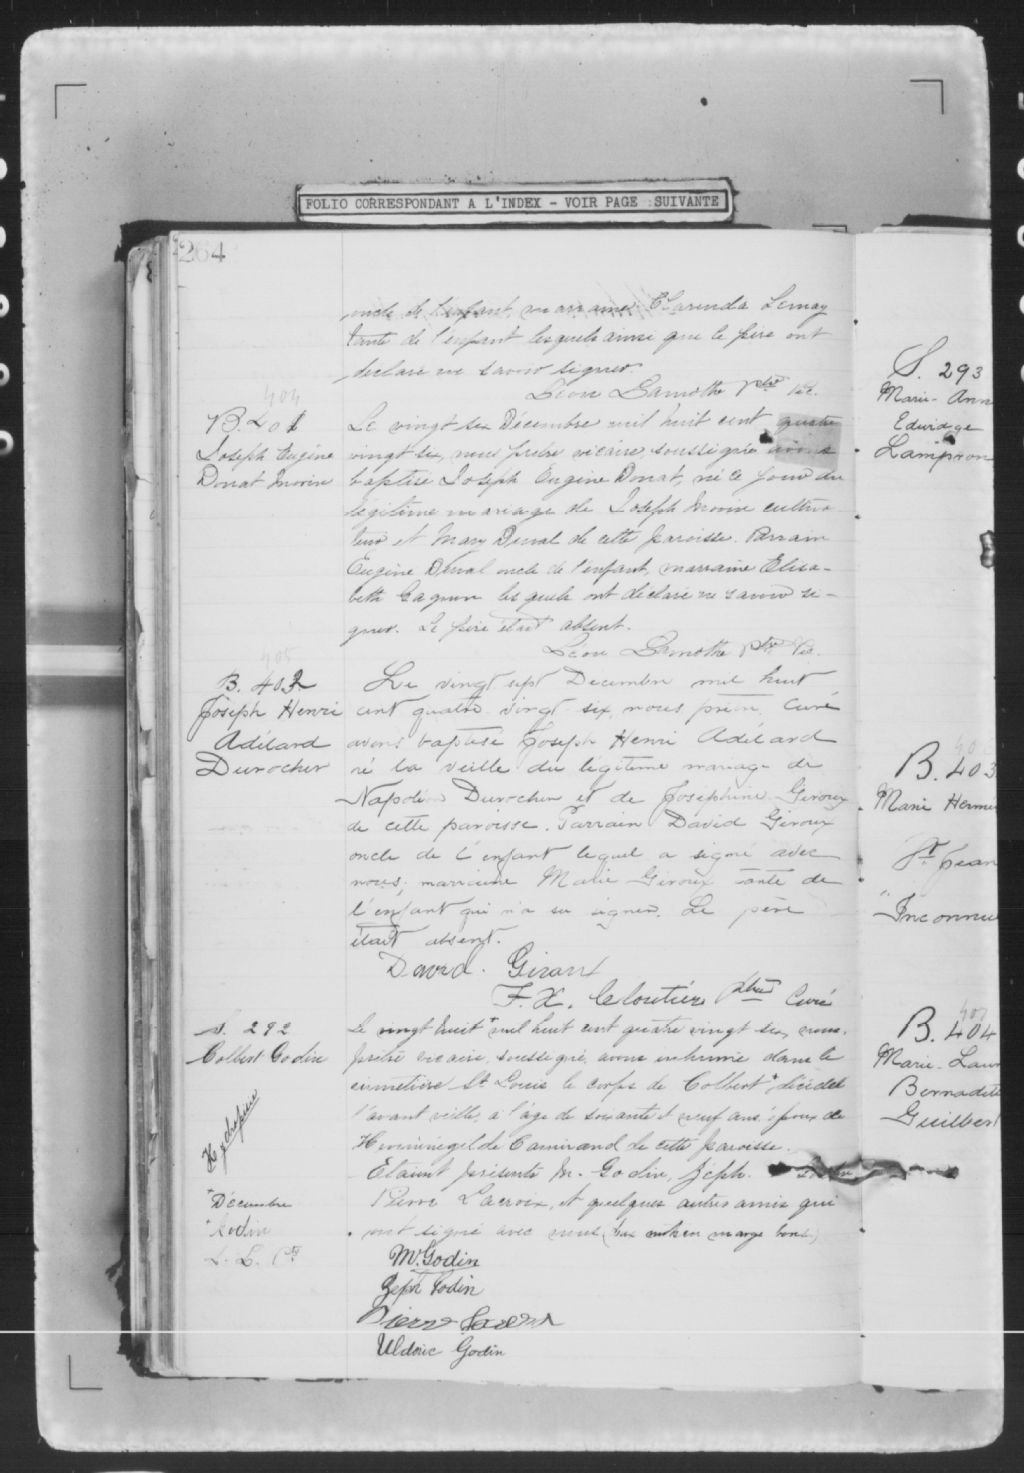 FOLIO CORRESPONDANT A L'INDEX - VOIR PAGE SUIVANTE
264
oncle de l'enfant, marraine Clarinda Lemay
tante de l'enfant lesquels ainsi que le père ont
déclaré ne savoir signer.
Léon Lamothe Ptre Vic.
404
B. 401
Joseph Eugène
Donat Morin
Le vingt six Décembre mil huit cent quatre
vingt six, nous prêtre vicaire soussigné avons
baptisé Joseph Eugène Donat, né ce jour du
légitime mariage de Joseph Morin cultiva-
teur et Mary Duval de cette paroisse. Parrain
Eugène Duval oncle de l'enfant, marraine Elisa-
beth Gagnon lesquels ont déclaré ne savoir si-
gner. Le père était absent.
Léon Lamothe Ptre Vic.
405
B. 402
Joseph Henri
Adélard
Durocher
Le vingt sept Decembre mil huit
cent quatre vingt six, nous prêtre, Curé
avons baptisé Joseph Henri Adélard
né la veille du légitime mariage de
Napoléon Durocher et de Joséphine Giroux
de cette paroisse. Parrain David Giroux
oncle de l'enfant lequel a signé avec
nous; marraine Marie Giroux tante de
l'enfant qui n'a su signer. Le père
était absent.
David. Girou
F. X. Cloutier Ptre Curé
S. 292
Colbert Godin
Hydropisie
Le vingt huit + mil huit cent quatre vingt six, nous,
prêtre vicaire, soussigné, avons inhumé dans le
cimetière St Louis le corps de Colbert +, décédé
l'avant veille, à l'âge de soixante et neuf ans, époux de
Herminégilde Camirand de cette paroisse.
Etaient présents M. Godin, Zéph.
Pierre Lacroix, et quelques autres amis qui
ont signé avec nous (deux mots en marge bons)
+ Décembre
+ Godin
L. L. Ptre
M. Godin
Zéph Godin
Pierre
Uldoric Godin
S. 293
Marie-Ann
Edwidge
Lampron
B. 403
Marie Hermi
St Jean
"Inconnu
407
B. 404
Marie-Laur
Bernadette
Guilbert